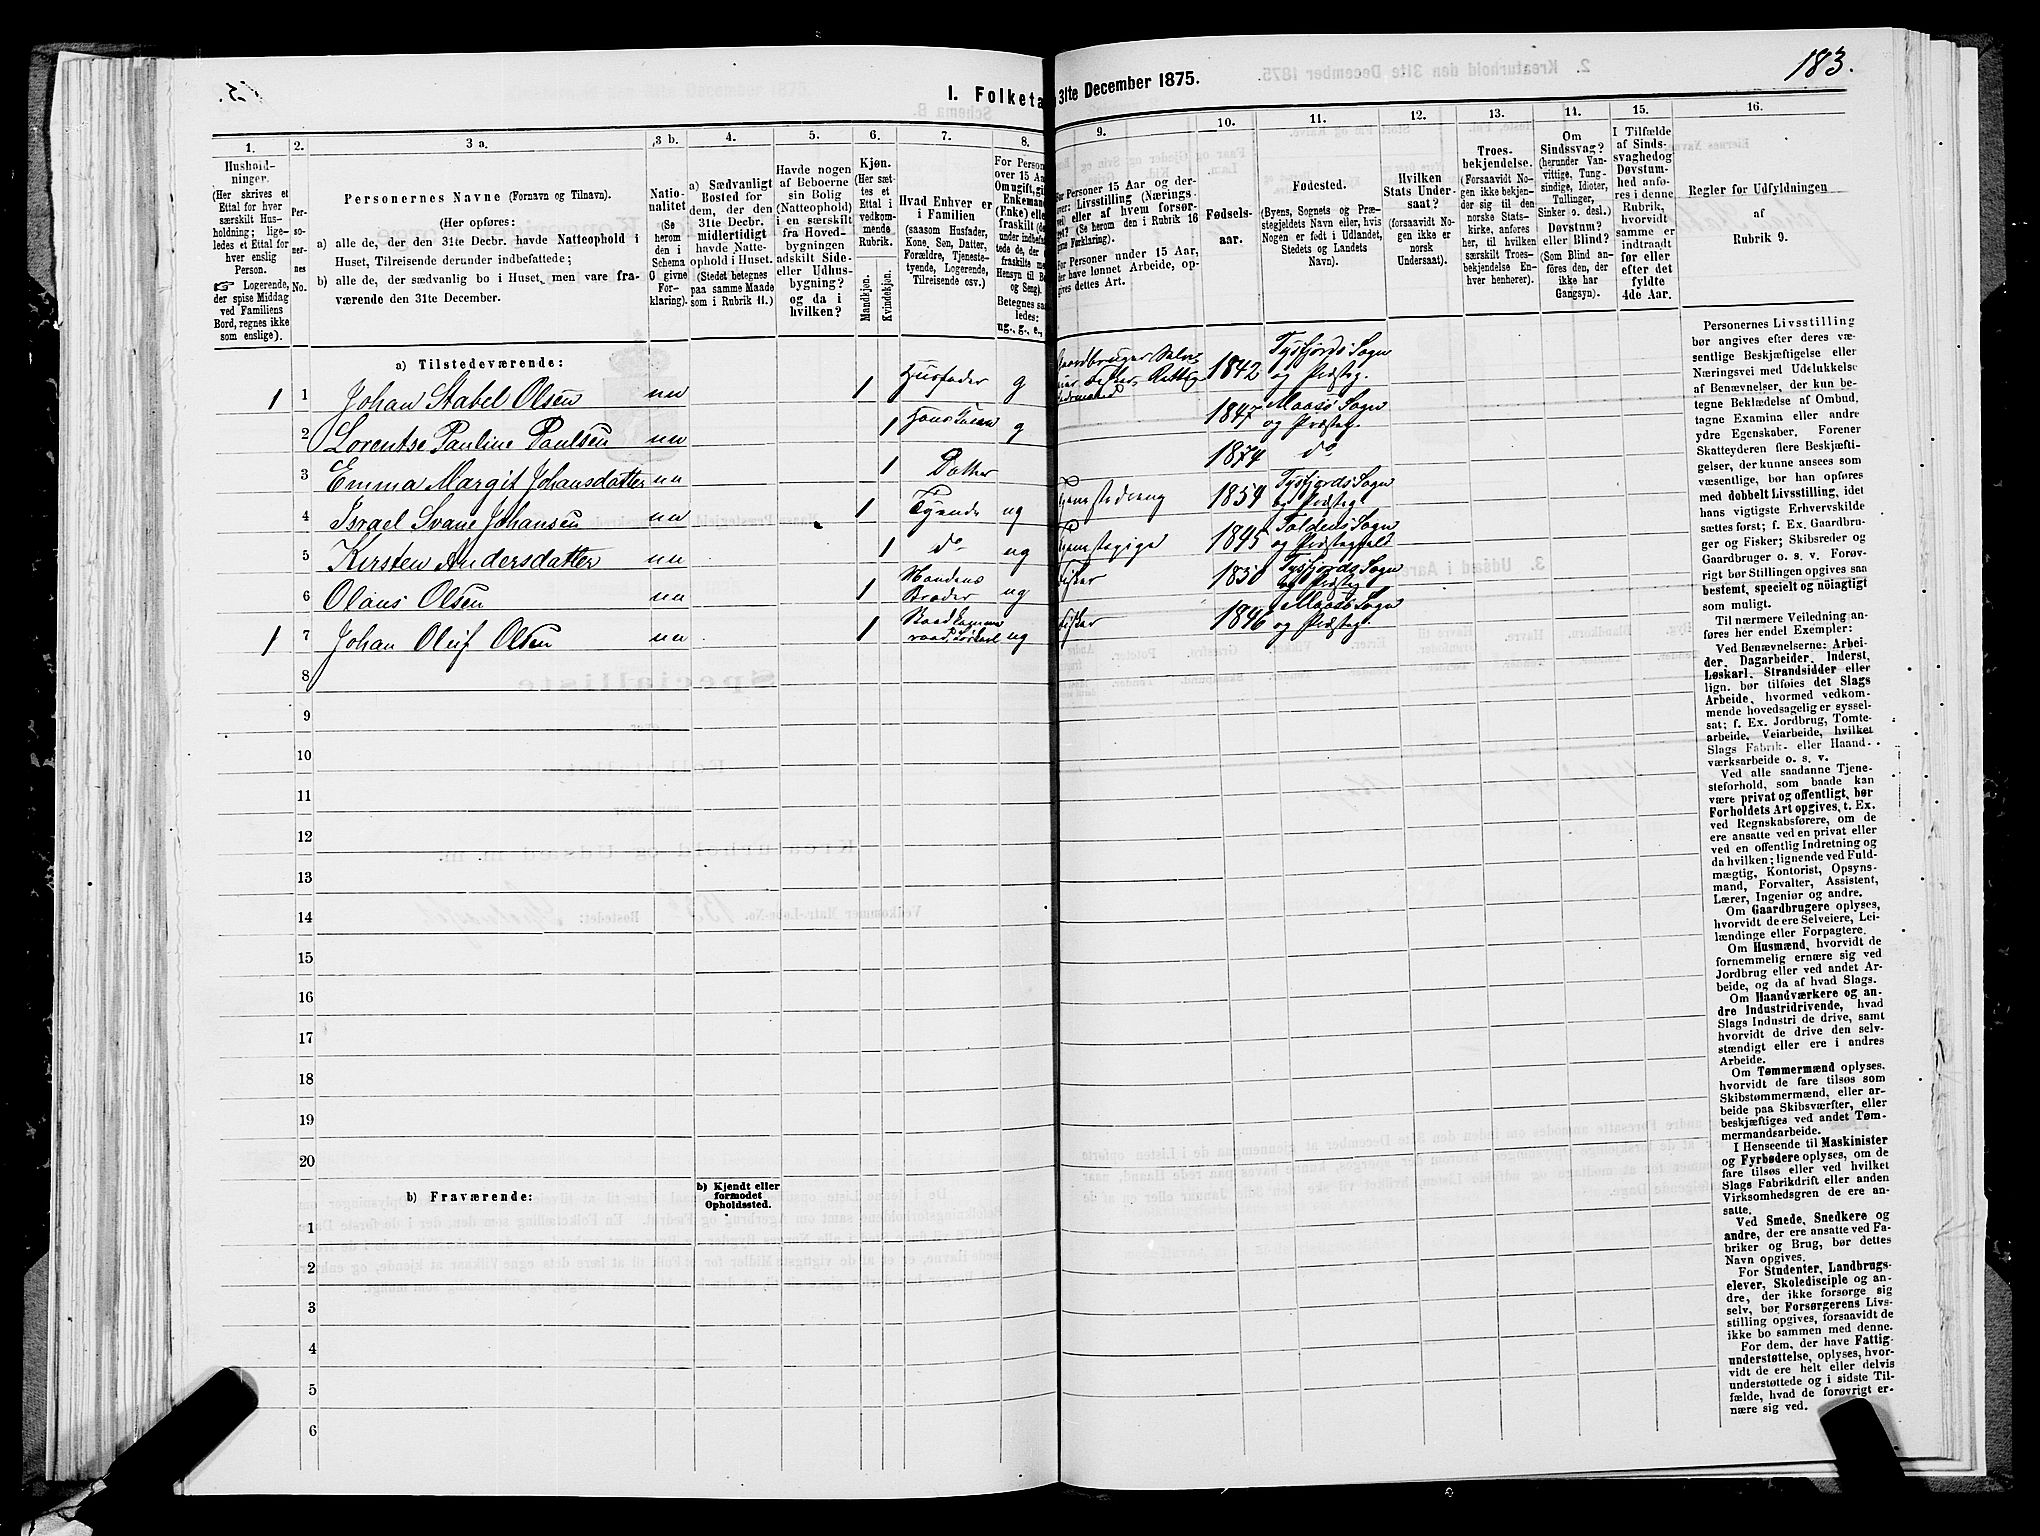 183.
I. Folketa 31te December 1875.
1.
Hushold-
ninger.
(Her skrives et
Ettal for hver
særskilt Hus-
holdning; lige-
ledes et Ettal for
hver enslig
Person.
☞ Logerende,
der spise Middag
ved Familiens
Bord, regnes ikke
som enslige).
2.
Per-
so-
ner-
nes
No.
3 a.
Personernes Navne (Fornavn og Tilnavn).
(Her opføres:
a) alle de, der den 31te Decbr. havde Natteophold i
Huset, Tilreisende derunder indbefattede;
b) alle de, der sædvanlig bo i Huset, men vare fra-
værende den 31te December.
3 b.
Natio-
nalitet
(Se
herom
den i
Schema
O givne
For-
klaring).
4.
a) Sædvanligt
Bosted for
dem, der den
31te Decbr.
midlertidigt
havde Natte-
ophold i Huset.
(Stedet betegnes
paa samme Maade
som i Rubrik 11.)
5.
Havde nogen
af Beboerne
sin Bolig
(Natteophold)
i en særskilt
fra Hoved-
bygningen
adskilt Side-
eller Udhus-
bygning?
og da i
hvilken?
6.
Kjøn.
(Her sæt-
tes et
Ettal i
vedkom-
mende
Rubrik.
Mandkjøn.
Kvindekjøn.
7.
Hvad Enhver er
i Familien
(saasom Husfader,
Kone, Søn, Datter,
Forældre, Tjeneste-
tyende, Logerende,
Tilreisende osv.)
8.
For Person
over 15 Aar
Om ugift, gif
Enkemand
(Enke) elle
fraskilt (de
under indbefat
tede de, der
fraskilte m
Hensyn til B
og Seng).
Betegnes sa
ledes:
ug., g., e.,
9.
For Personer 15 Aar og der-
over: Livsstilling (Nærings-
vei) eller af hvem forsør-
get? (Se herom den i Rubrik 16
givne Forklaring).
For Personer under 15 Aar,
der have lønnet Arbeide, op-
gives dettes Art.
10.
Fødsels-
aar.
11.
Fødested.
(Byens, Sognets og Præ-
stegjeldets Navn eller, hvis
Nogen er født i Udlandet,
Stedets og Landets
Navn).
12.
Hvilken
Stats Under-
saat?
(forsaavidt No-
gen ikke er
norsk
Undersaat).
13.
Troes-
bekjendelse.
(Forsaavidt No-
gen ikke bekjen-
der sig til den
norske Stats-
kirke, anføres
her, til hvilken
særskilt Troes-
bekjendelse En-
hver henhører).
14.
Om
Sindssvag?
(herunder Van-
vittige, Tung-
sindige, Idioter,
Tullinger,
Sinker o. desl.)
Døvstum?
eller Blind?
(Som Blind an-
føres den, der
ikke har
Gangsyn).
15.
I Tilfælde
af Sinds-
svaghed og
Døvstum-
hed anfø-
res i denne
Rubrik,
hvorvidt
samme er
indtraadt
før eller
efter det
fyldte
4de Aar.
16.
Regler for Udfyldningen
af
Rubrik 9.
a) Tilstedeværende:
1 1 Johan Stabel Olsen nn 1 Husfader g 1842 Tysfjords Sogn og Præsteg.
2 Lorentse Pauline Paulsen nn 1 g 1847 Maasø Sogn og Præsteg.
3 Emma Margit Johansdatter nn 1 Datter 1874 do
4 Israel Svane Johansen nn 1 Tyende ug Tjenestedreng 1854 Tysfjords Sogn og Præsteg
5 Kirsten Andersdatter nn 1 do ug Tjenestepige 1845 Sogn og Præstegjeld
6 Olaus Olsen nn 1 Mandens Broder ug Fisker 1850 Tysfjords Sogn og Præsteg
1 7 Johan Oluf Olsen nn 1 ug Fisker 1846 Maasø Sogn og Præsteg.
8
9
10
11
12
13
14
15
16
17
18
19
20
b) Fraværende:
b) Kjendt eller
formodet
Opholdssted.
1
2
3
4
5
6
Personernes Livsstilling
bør angives efter deres væ-
sentlige Beskjæftigelse eller
Næringsvei med Udelukkelse
af Benævnelser, der kun be-
tegne Beklædelse af Ombud,
tagne Examina eller andre
ydre Egenskaber. Forener
Skatteyderen flere Beskjæfti-
gelser, der kunne ansees som
væsentlige, bør han opføres
med dobbelt Livsstilling, idet
hans vigtigste Erhvervskilde
sættes først; f. Ex. Gaardbru-
ger og Fisker; Skibsreder og
Gaardbruger o. s. v. Forøv-
rigt bør Stillingen opgives saa
bestemt, specielt og nöiagtigt
som muligt.
Til nærmere Veiledning an-
føres her endel Exempler:
Ved Benævnelserne: Arbei-
der, Dagarbeider, Inderst,
Løskarl, Strandsidder eller
lign. bør tilføies det Slags
Arbeide, hvormed vedkom-
mende hovedsagelig er syssel-
sat; f. Ex. Jordbrug, Tomte-
arbeide, Veiarbeide, hvilket
Slags Fabrik- eller Haand-
værksarbeide o. s. v.
Ved alle saadanne Tjene-
steforhold, som baade kan
være privat og offentligt, bør
Forholdets Art opgives, t. Ex.
ved Regnskabsførere, om de
ere ansatte ved en privat eller
ved en offentlig Indretning og
da hvilken; lignende ved Fuld-
mægtig, Kontorist, Opsyns-
mand, Forvalter, Assistent,
Lærer, Ingeniør og andre.
Om Gaardbrugere oplyses,
hvorvidt de ere Selveiere, Lei-
lændinge eller Forpagtere.
Om Husmænd, hvorvidt de
fornemmelig ernære sig ved
Jordbrug eller ved andet Ar-
beide, og da af hvad Slags.
Om Haandværkere og an-
dre Industridrivende, hvad
Slags Industri de drive, samt
hvorvidt de drive den selv-
stændigt eller ere i andres
Arbeide.
Om Tømmermænd oplyses,
hvorvidt de fare tilsøs som
Skibstømmermænd, eller ar-
beide paa Skibsværfter, eller
beskjæftiges ved andet Tøm-
mermandsarbeide.
I Henseende til Maskinister
og Fyrbødere oplyses, om de
fare tilsøs eller ved hvilket
Slags Fabrikdrift eller anden
Virksomhedsgren de ere an-
satte.
Ved Smede, Snedkere og
andre, der ere ansatte ved Fa-
briker og Brug, bør dettes
Navn opgives.
For Studenter, Landbrugs-
elever, Skoledisciple og an-
dre, der ikke forsørge sig
selv, bør Forsørgerens Livs-
stilling opgives, forsaavidt de
ikke bo sammen med denne.
For dem, der have Fattig-
understøttelse, oplyses, hvor-
vidt de ere helt eller delvis
understøttede og i sidste Til-
fælde, hvad de forøvrigt er-
nære sig ved.